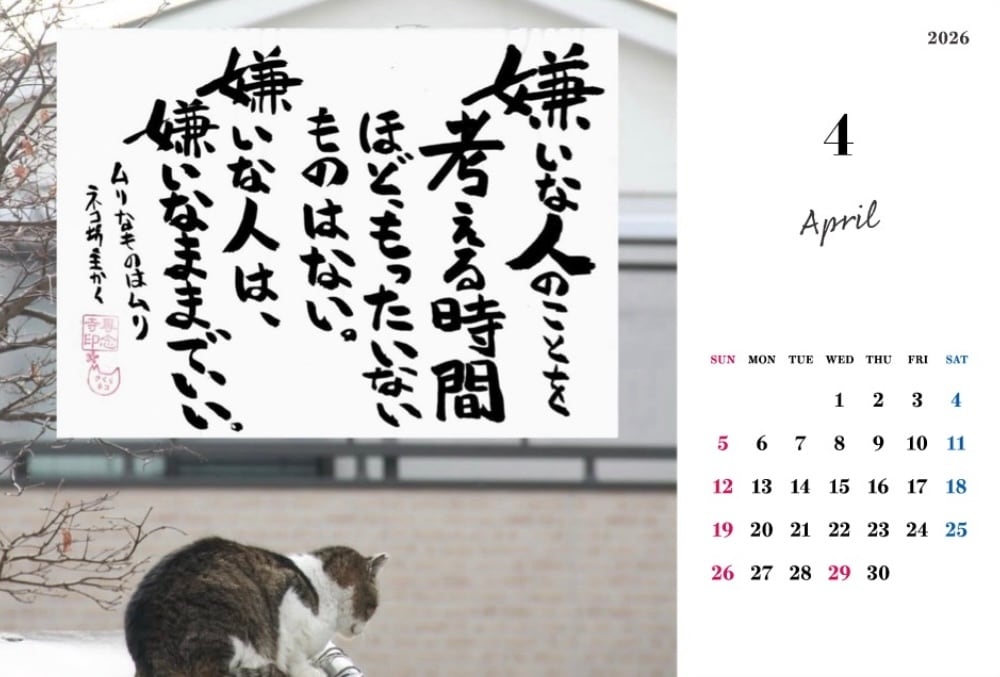 嫌いな人のことを
考える時間
ほど、もったいない
ものはない。
嫌いな人は、
嫌いなままでいい。
ムリなものはムリ
ネコ坊主かく
専念
寺印
さくら
ネコ
2026
4
April
SUN MON TUE WED THU FRI SAT
1 2 3 4
5 6 7 8 9 10 11
12 13 14 15 16 17 18
19 20 21 22 23 24 25
26 27 28 29 30